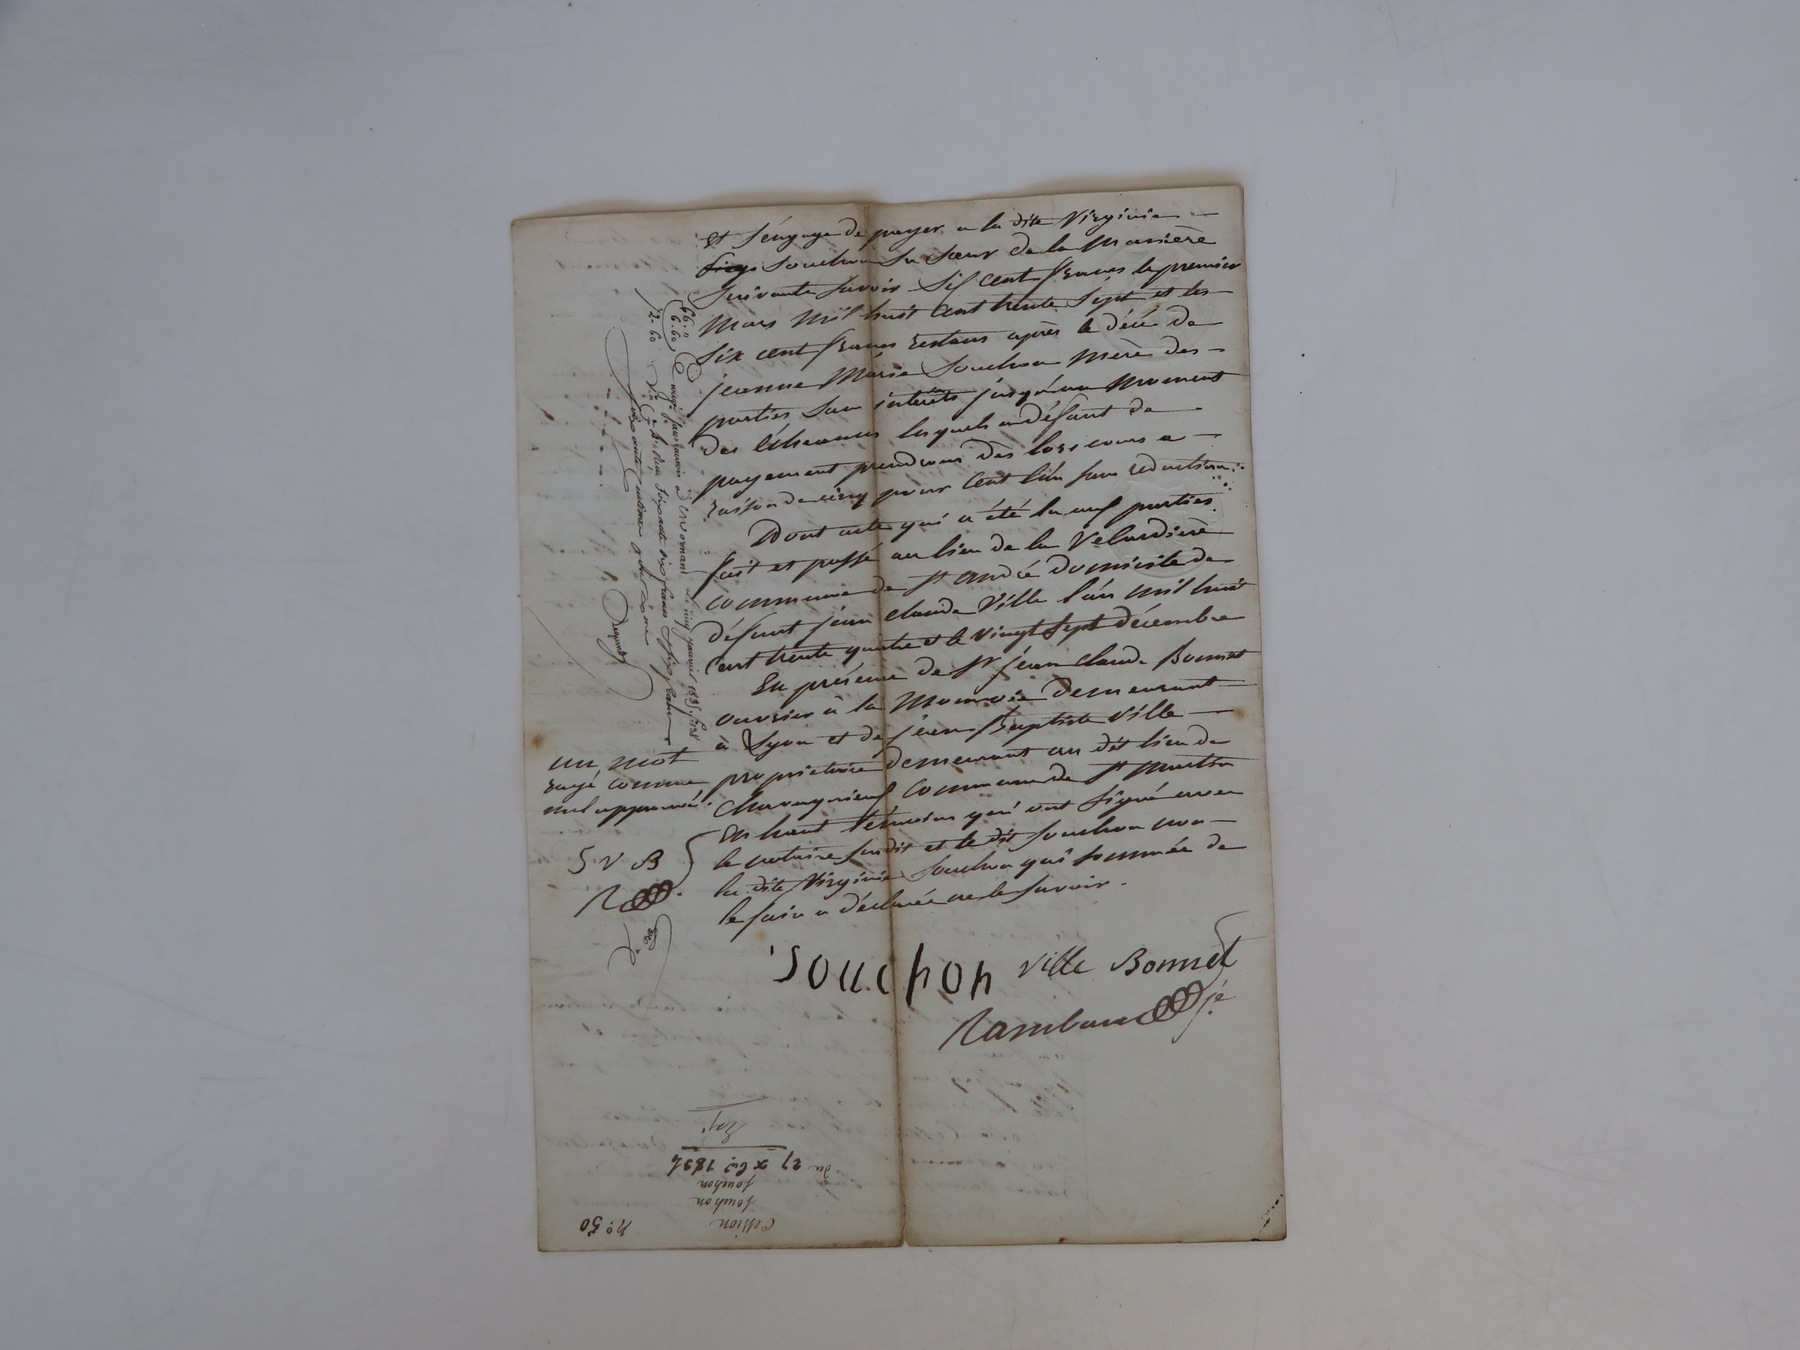 et s'éngage de payer a la dite Virginie
Souchon sa sœur de la manière
suivante savoir six cent francs le premier
mars mil huit cent trente sept et les
six cent francs restans après le décé de
jeanne Marie Souchon mère des
parties sans intérêts jusqu'au moment
des écheances lesquels a défaut de
payement prendrons dès lors cours a
raison de cinq pour cent l'an sans reduction
Dont acte qui a été lu aux parties
fait et passé au lieu de la Velardière
commune de St andré domicile de
défunt jean claude Ville l'an mil huit
cent trente quatre et le vingt sept décembre
En présence de Sr jean claude Bonnet
ouvrier à la Monnoie demeurant
à Lyon et de jean Baptiste Ville
propriétaire demeurant au dit lieu de
commune de St Martin
en haut témoins qui ont signé avec
le notaire susdit et le dit Souchon non
la dite Virginie Souchon qui sommée de
le faire a déclarée ne le savoir.
un mot
rayé comme
nul approuvé.
S V B
R
Souchon Ville Bonnet
66. "
6. 60
72. 60
janvier 1835
soixante six francs
soixante centimes
N° 50
Cession
Souchon
Souchon
du 27 xbre 1834